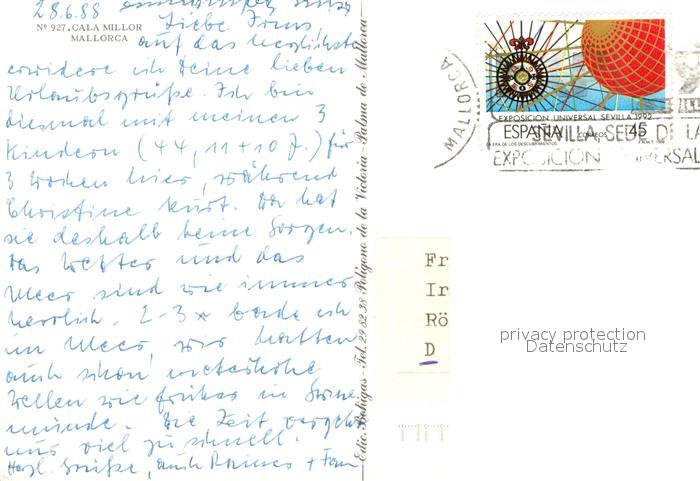 28.6.88
Nº 927. CALA MILLOR
MALLORCA
Liebe
auf das herzlichste
erwidere ich Deine lieben
Urlaubsgrüße. Ich bin
diesmal mit meinen 3
Kindern (44, 11 + 10 J.) für
3 Wochen hier, während
Christine kurt. Da hat
sie deshalb keine Sorgen.
Das Wetter und das
Meer sind wie immer
herrlich. 2-3 x bade ich
im Meer, wir hatten
auch schon meterhohe
Wellen wie früher in Swine
münde. Die Zeit vergeht
uns viel zu schnell.
Herzl. Grüße, auch + Fam
Edic. Bohigas - Tel. 29 82 38 Polígono de la Victoria - Palma de Mallorca
MALLORCA
EXPOSICION UNIVERSAL SEVILLA 1992
ESPAÑA CORREOS 45
LA ERA DE LOS DESCUBRIMIENTOS
SEVILLA SEDE DE LA
EXPOSICION UNIVERSAL
Fr
Ir
Rö
D
privacy protection
Datenschutz